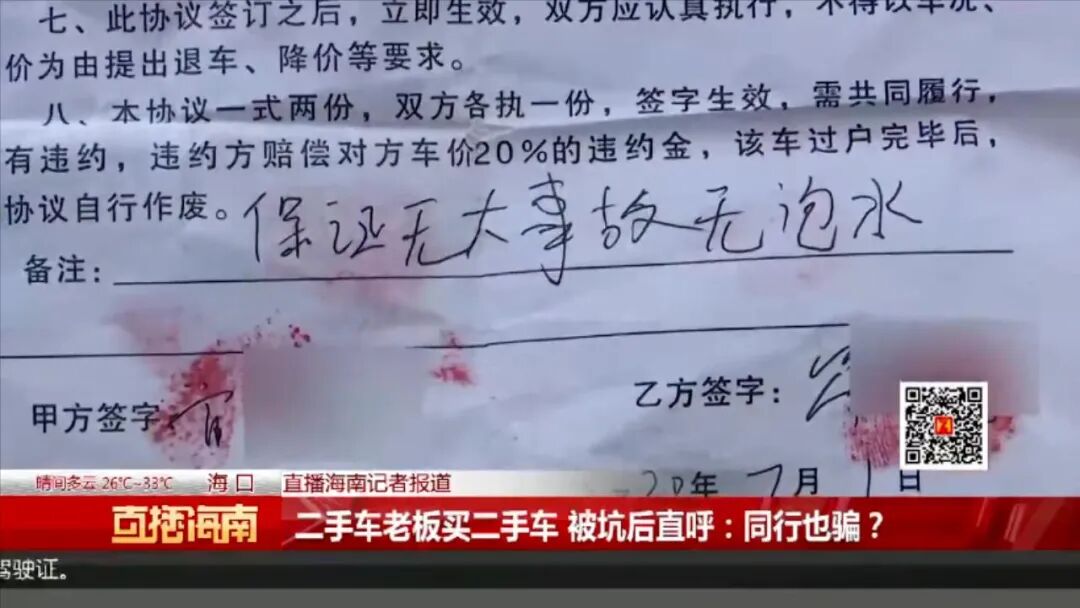 七、此协议签订之后，立即生效，双方应认真执行，不得以车况、
价为由提出退车、降价等要求。
八、本协议一式两份，双方各执一份，签字生效，需共同履行，
有违约，违约方赔偿对方车价20%的违约金，该车过户完毕后，
协议自行作废。
保证无大事故无泡水
备注：
甲方签字
乙方签字：
20年7月1日
晴间多云 26℃~33℃ 海口 直播海南记者报道
直播海南
二手车老板买二手车 被坑后直呼：同行也骗？
驾驶证。